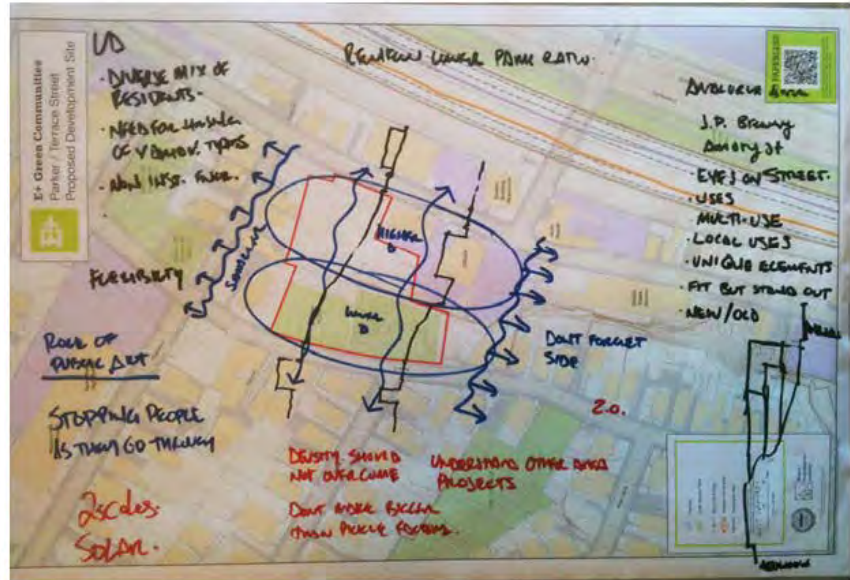 E+ Green Communities
Parker / Terrace Street
Proposed Development Site
E+
UD
· DIVERSE MIX OF
RESIDENTS.
· NEED FOR HOUSING
OF VARIOUS TYPES
FLEXIBILITY
ROLE OF
PUBLIC ART
STOPPING PEOPLE
AS THEY GO THROUGH
2 scales.
SOLAR.
LOWER PARK RATIO.
HIGHER
D
LOWER
D
DONT FORGET
SIDE
2.0.
DENSITY SHOULD
NOT OVERCOME
UNDERSTAND OTHER AREA
PROJECTS
DONT MORE BIGGER
THAN PICKLE FACTORY.
J.P. Brewery
Amory st
· EYES ON STREET.
· USES
MULTI-USE
· LOCAL USES
· UNIQUE ELEMENTS
· FIT BUT STAND OUT
· NEW/OLD